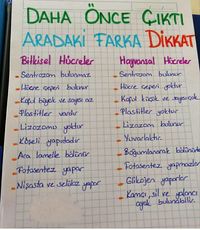 DAHA ÖNCE ÇIKTI
ARADAKİ FARKA DİKKAT
Bitkisel Hücreler
- Sentrozom bulunmaz
- Hücre çeperi bulunur
- Koful büyük ve sayısı az
- Plastitler vardır
- Lizozomu yoktur
- Köşeli yapıdadır
- Ara lamelle bölünür
- Fotosentez yapar
- Nişasta ve selüloz yapar
Hayvansal Hücreler
- Sentrozom bulunur
- Hücre çeperi yoktur
- Koful küçük ve sayısı çok
- Plastitler yoktur
- Lizozom bulunur
- Yuvarlaktır
- Boğumlanarak bölünür
- Fotosentez yapmazlar
- Glikojen yaparlar
- Kamçı, sil ve yalancı
ayak bulunabilir.